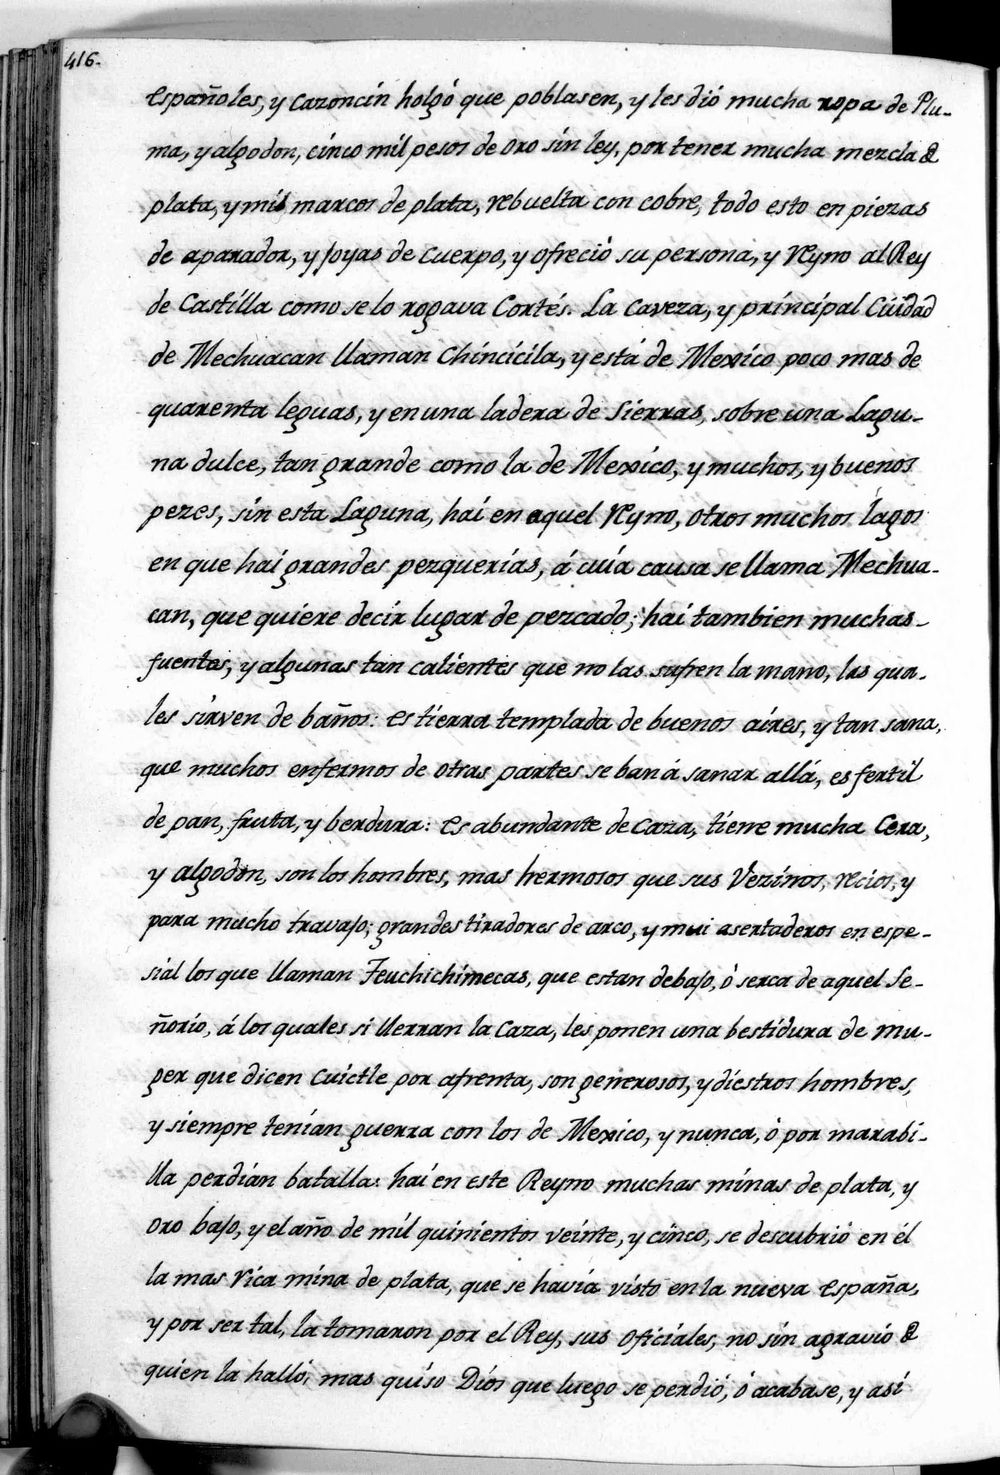 416.
españoles, y cazoncin holgó que poblasen, y les dió mucha ropa de Plu-
ma, y algodon, cinco mil pesos de oro sin ley, por tener mucha mezcla @
plata, y mil marcos de plata, rebuelta con cobre, todo esto en piezas
de aparador, y joyas de cuerpo, y ofreció su persona, y Reyno al Rey
de Castilla como se lo rogava Cortés. La Caveza, y principal Ciudad
de Mechuacan llaman Chincicila, y está de Mexico poco mas de
quarenta leguas, y en una ladera de Sierras, sobre una Lagu-
na dulce, tan grande como la de Mexico, y muchos, y buenos
pezes, sin esta Laguna, hai en aquel Reyno, otros muchos lagos
en que hai grandes pezquerias, á cuia causa se llama Mechua-
can, que quiere decir lugar de pezcado; hai tambien muchas
fuentes, y algunas tan calientes que no las sufren la mano, las qua-
les sirven de baños: es tierra templada de buenos aires, y tan sana,
que muchos enfermos de otras partes se ban á sanar allá, es fertil
de pan, fruta, y berdura: es abundante de caza, tiene mucha Cera,
y algodon, son los hombres, mas hermosos que sus Vezinos, recios, y
para mucho travajo; grandes tiradores de arco, y mui asertaderos en espe-
sial los que llaman Teuchichimecas, que estan debajo, ó serca de aquel Se-
ñorio, á los quales si llerran la Caza, les ponen una bestidura de mu-
ger que dicen cuictle por afrenta, son generosos, y diestros hombres,
y siempre tenian guerra con los de Mexico, y nunca, ó por marabi-
lla perdian batalla: hai en este Reyno muchas minas de plata, y
oro bajo, y el año de mil quinientos veinte, y cinco, se descubrió en él
la mas rica mina de plata, que se havia visto en la nueva España,
y por ser tal, la tomaron por el Rey, sus oficiales, no sin agravio @
quien la halló; mas quiso Dios que luego se perdió, ó acabase, y asi